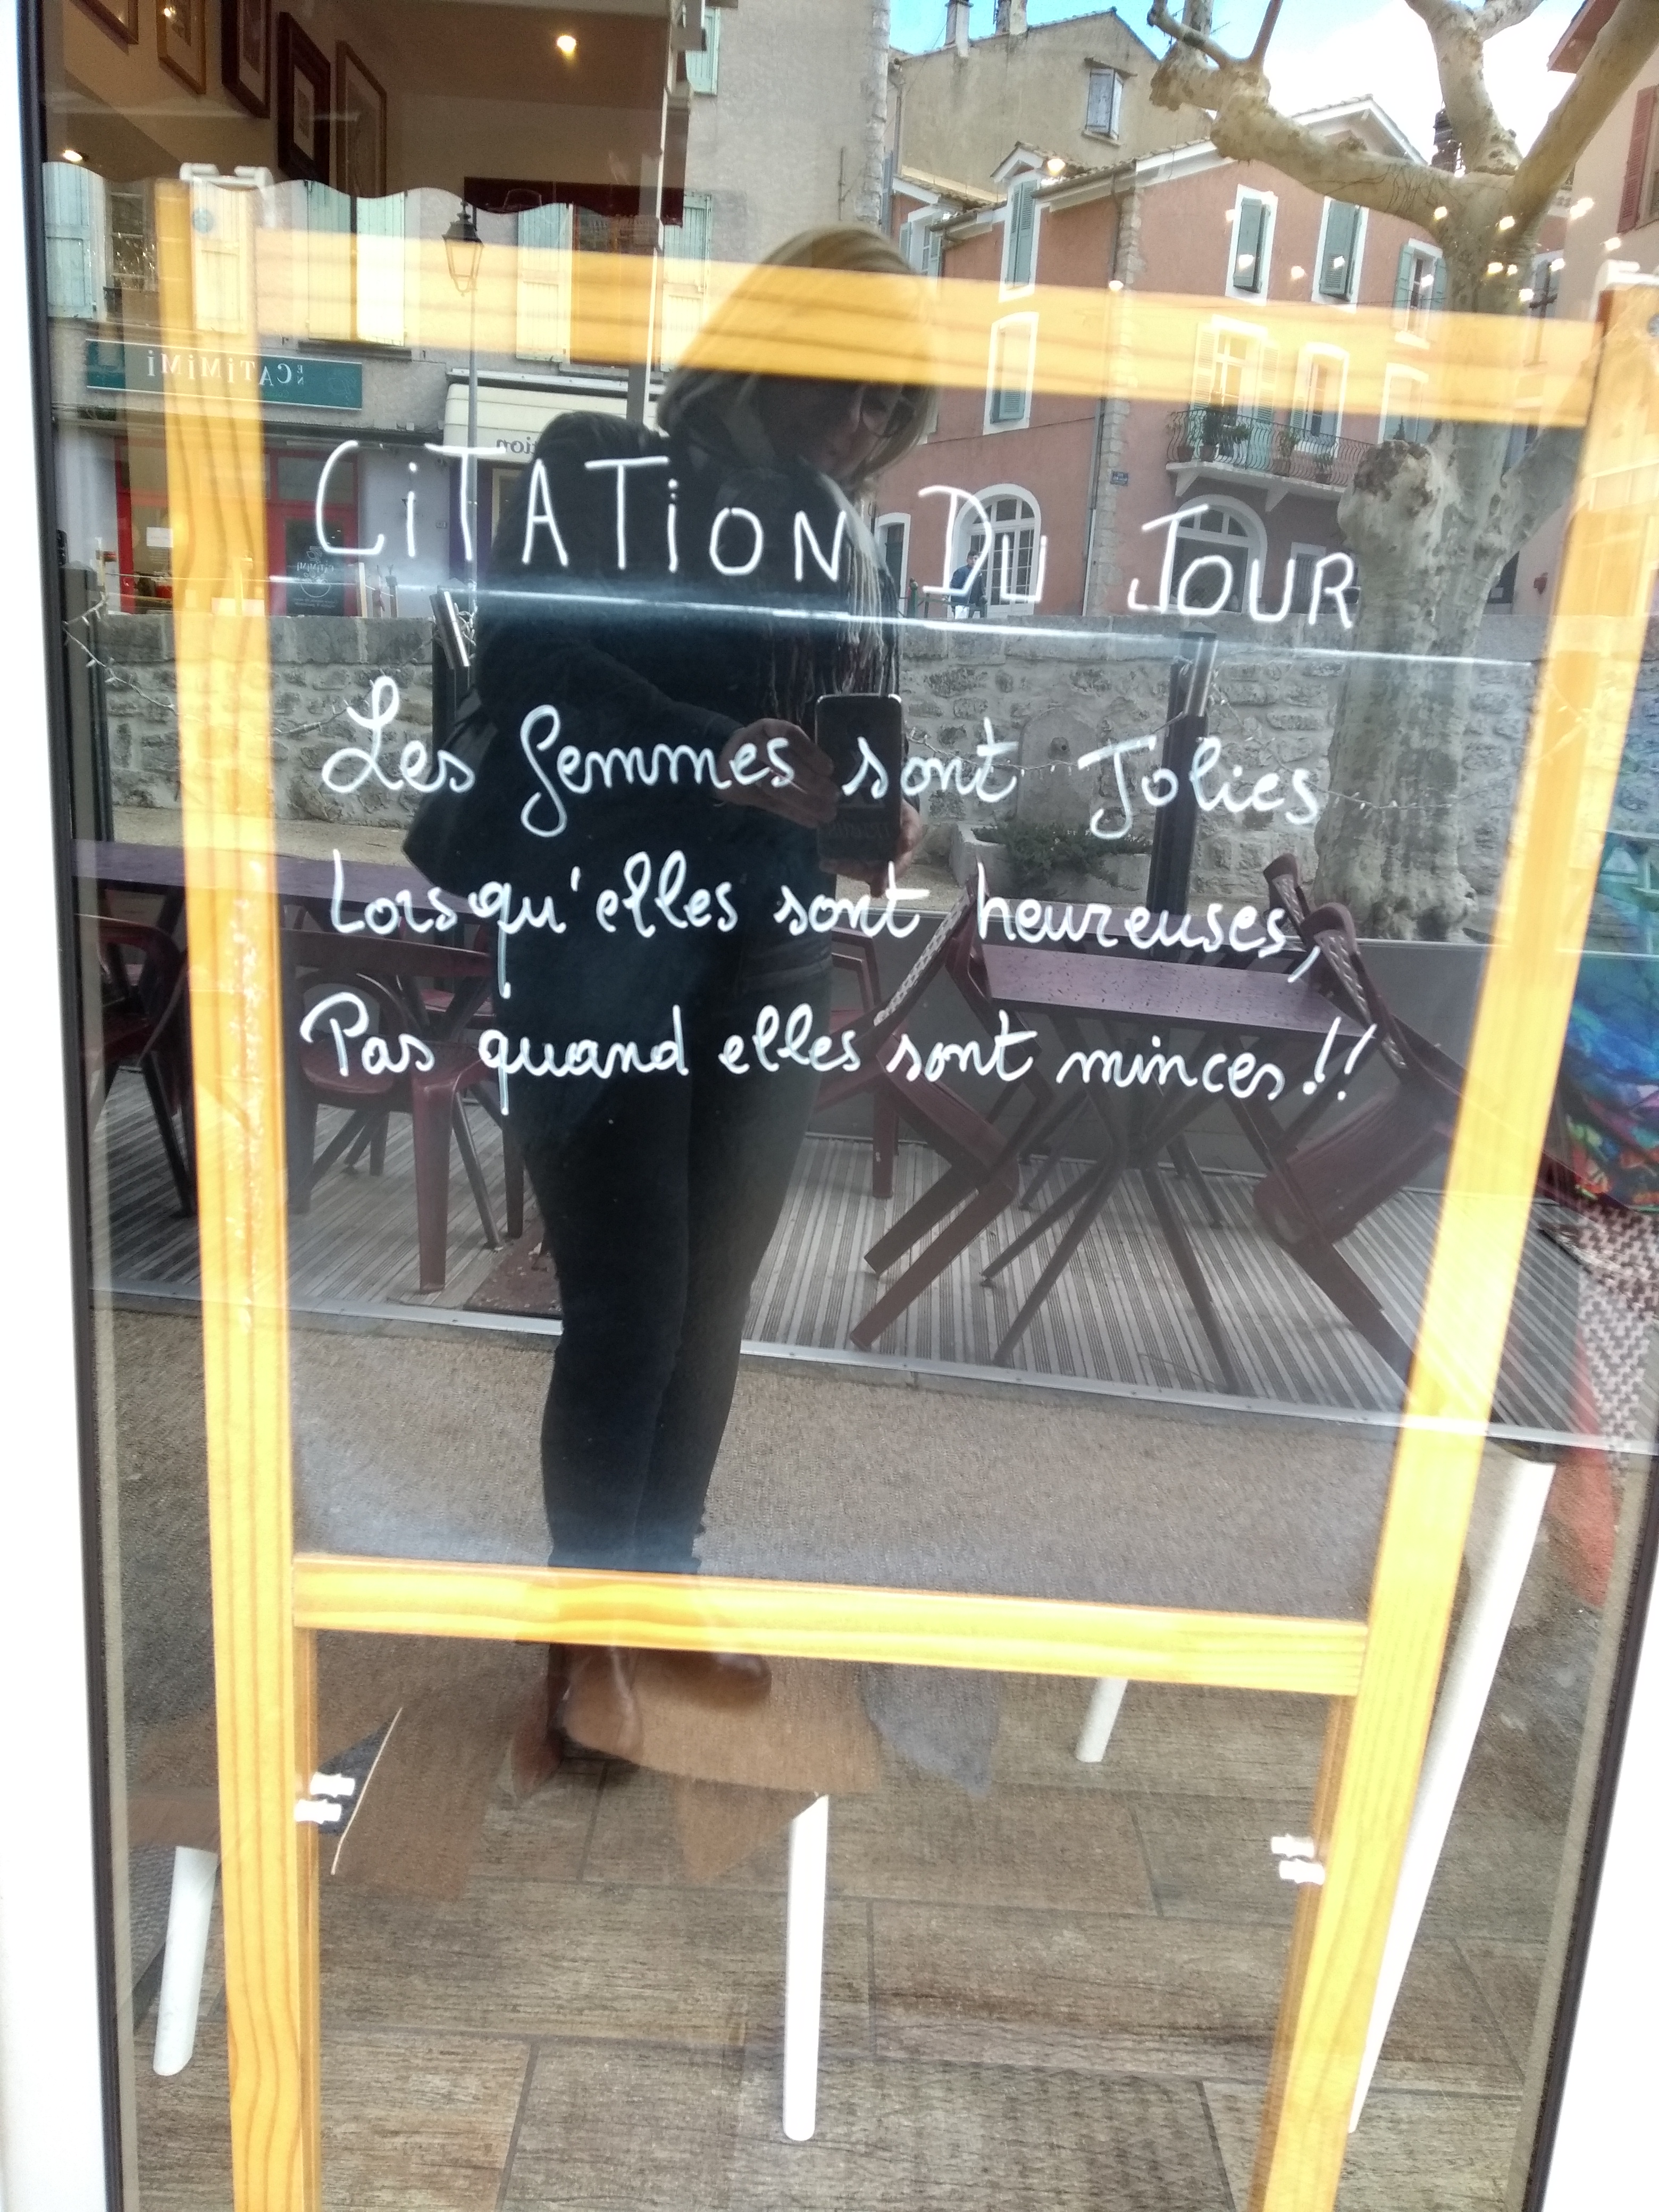 EN CATiMiMi
CiTATiON DU JOUR
Les femmes sont Jolies
Lorsqu'elles sont heureuses,
Pas quand elles sont minces !!